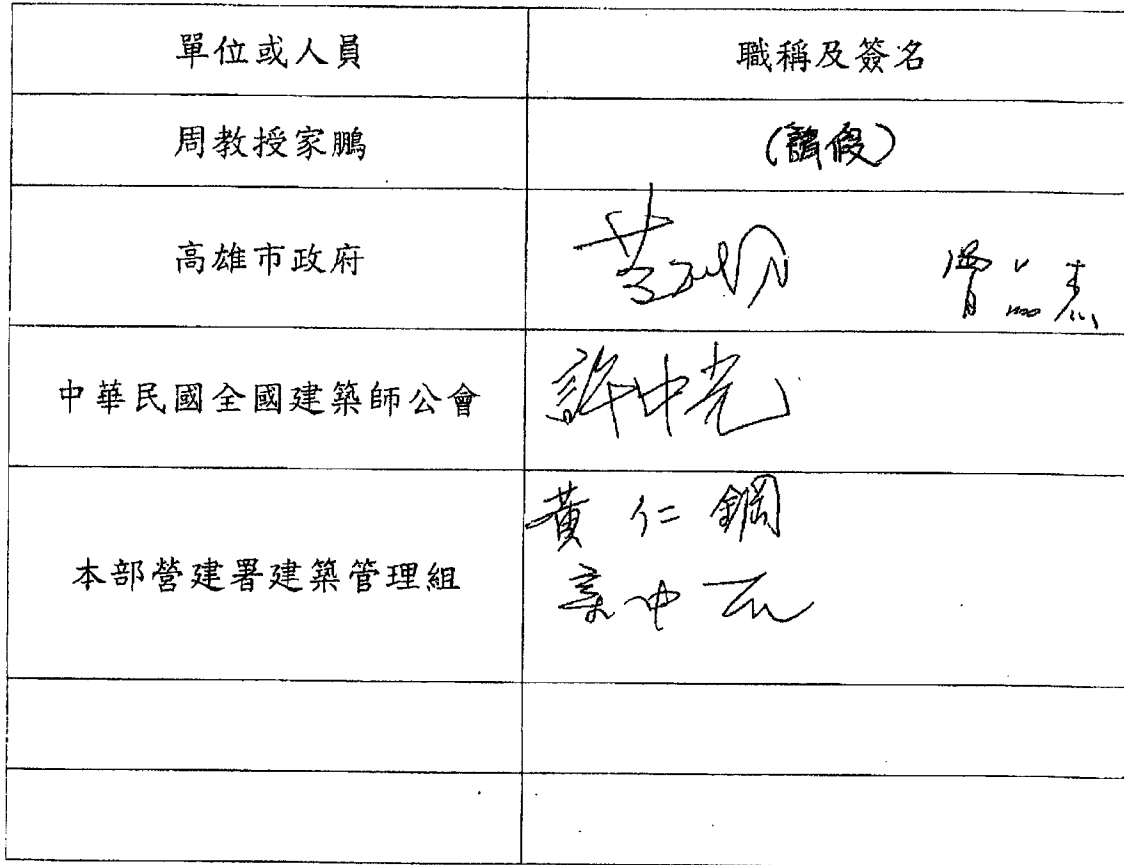 單位或人員
職稱及簽名
周教授家鵬
(請假)
高雄市政府
中華民國全國建築師公會
許中光
本部營建署建築管理組
黃仁鋼